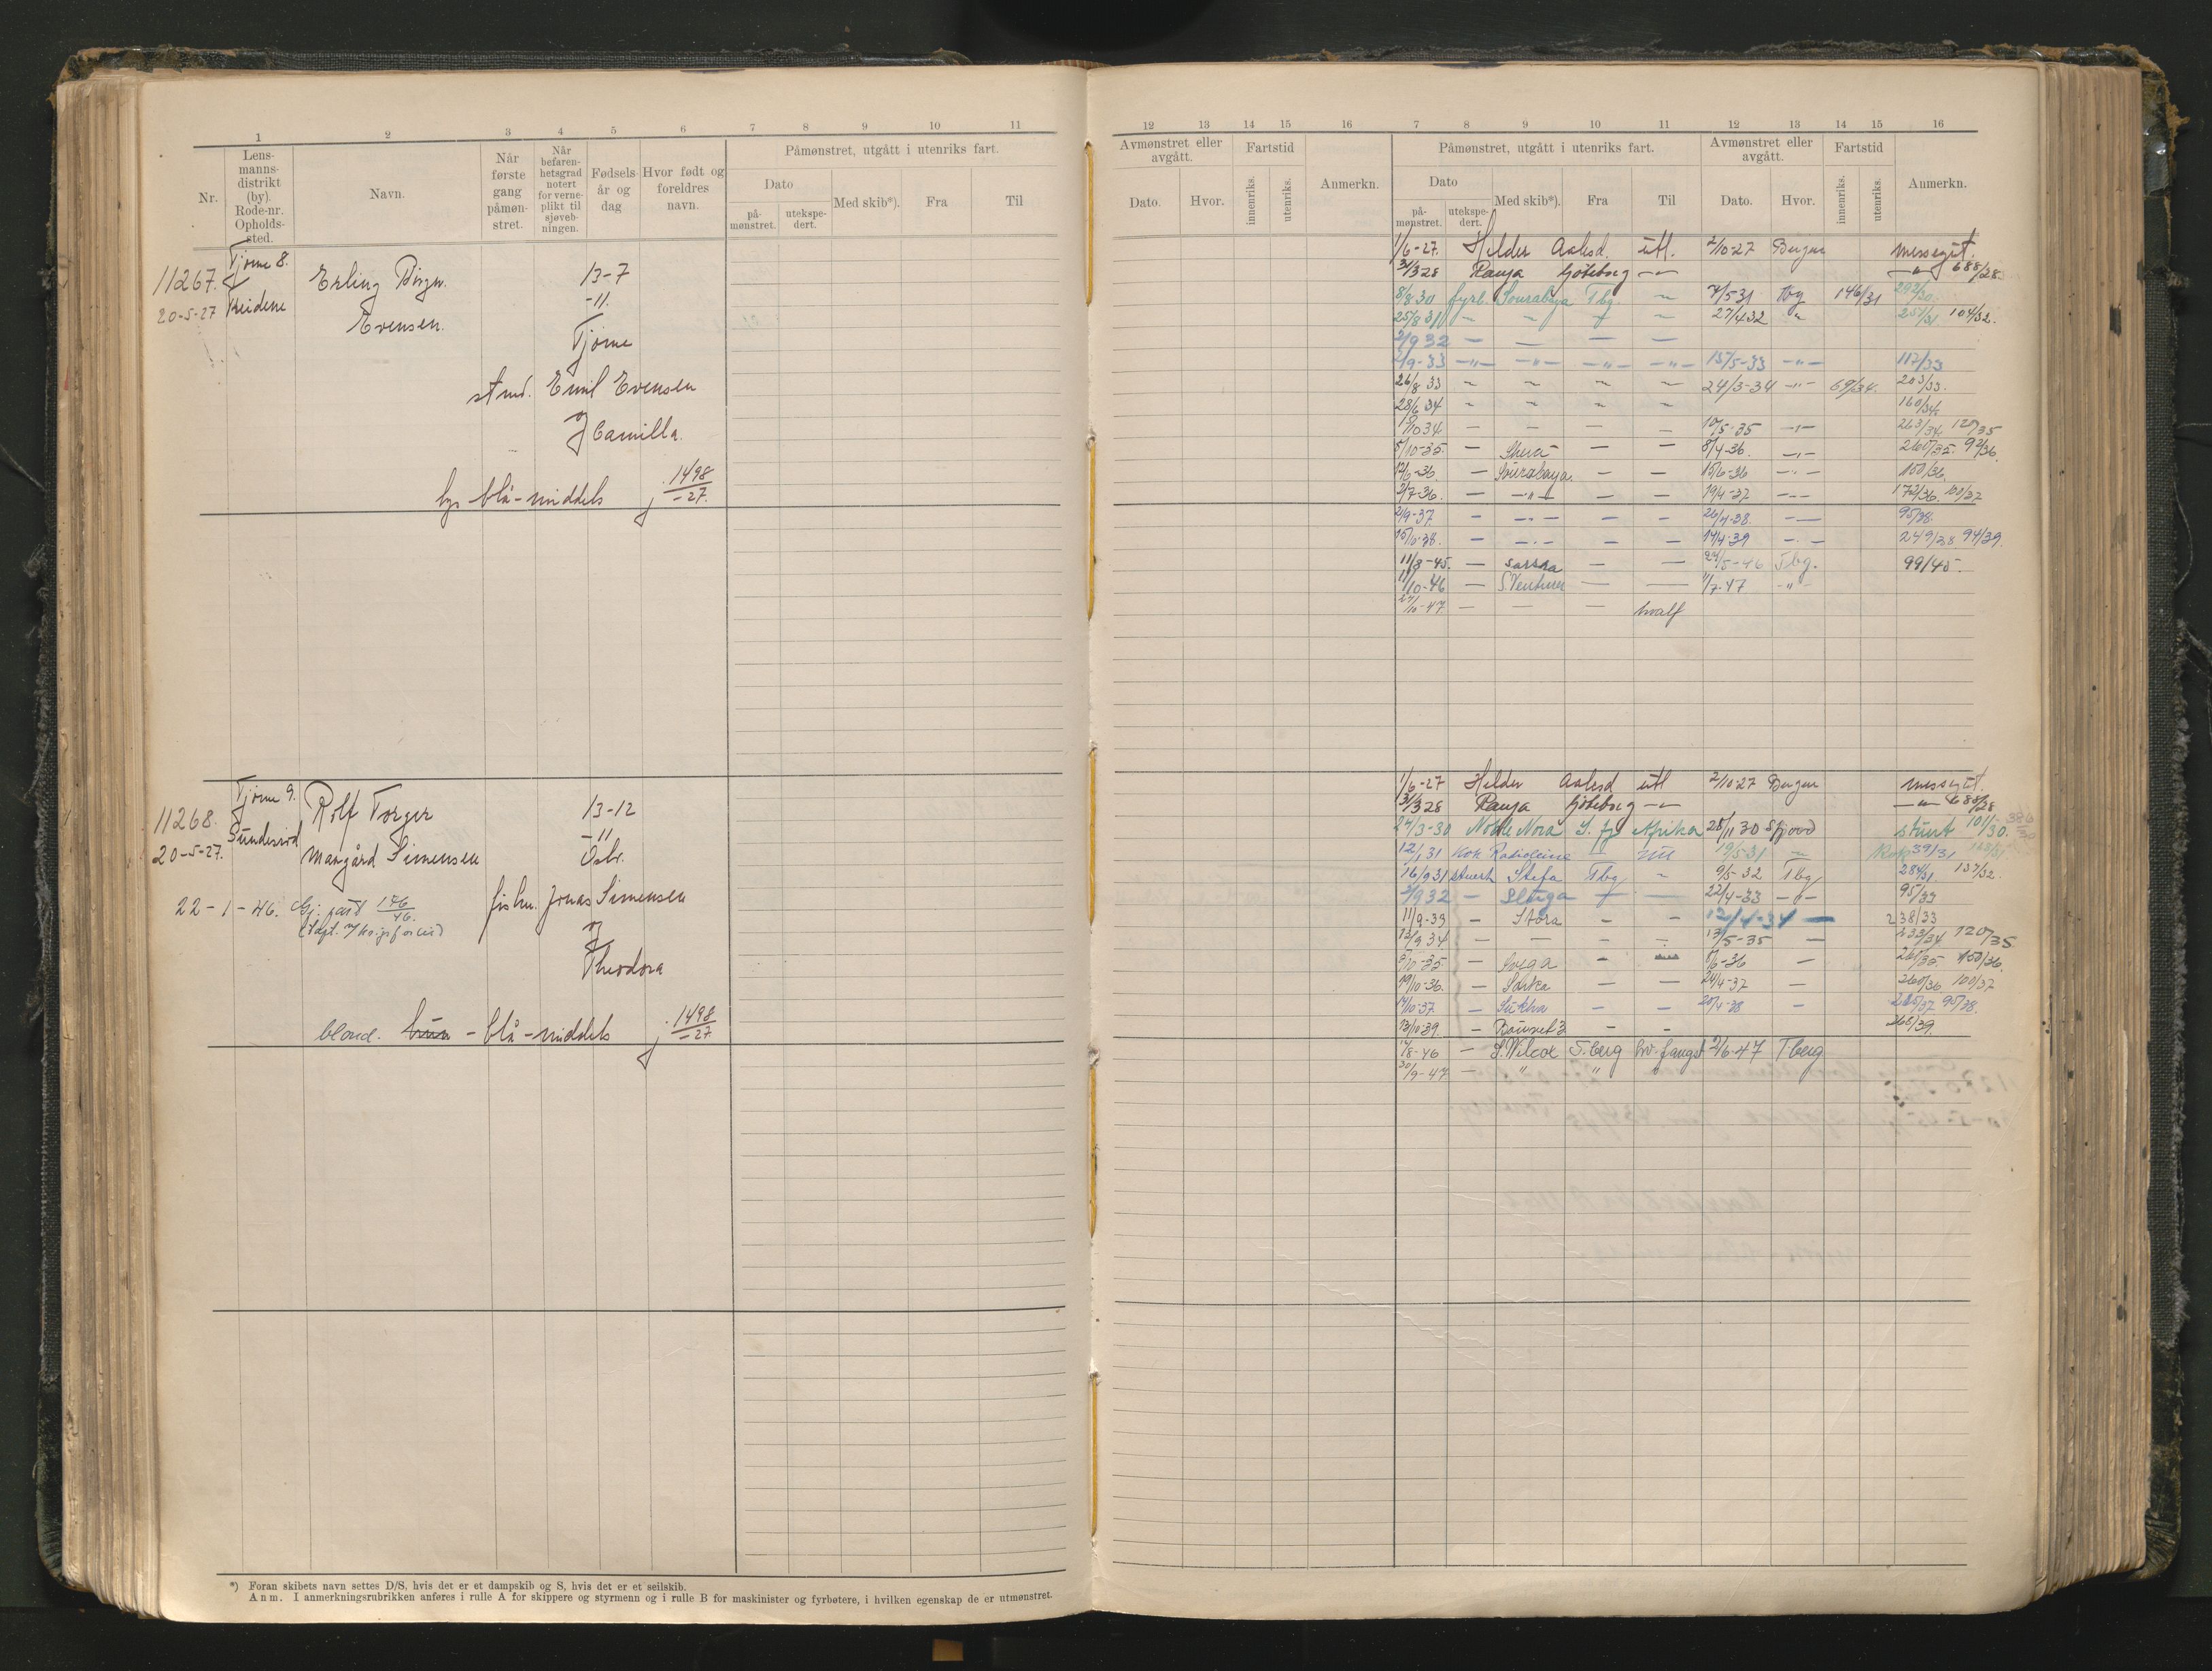 1 2 3 4 5 6 7 8 9 10 11
Nr.
Lens-
manns-
distrikt
(by).
Rode-nr.
Opholds-
sted.
Navn.
Når
første
gang
påmøn-
stret.
Når
befaren-
hetsgrad
notert
for verne-
plikt til
sjøveb-
ningen.
Fødsels-
år og
dag
Hvor født og
foreldres
navn.
Påmønstret, utgått i utenriks fart.
Dato
på-
mønstret.
utekspe-
dert.
Med skib*).
Fra
Til
Tjøme 8.
11267.
20-5-27
Erling Birger
Evensen.
13-7
-11.
Tjøme
stmd. Emil Evensen
og
Camilla.
lys blå-middels j. 1498/-27.
Tjøme 9.
11268.
Sundersrød
20-5-27.
Rolf Torger
Margård Simensen
13-12
-11
Osbr.
22-1-46.
fiskm. Jonas Simensen
og
Theodora
blond. brun - blå-middels j. 1498/-27
*) Foran skibets navn settes D/S, hvis det er et dampskib og S, hvis det er et seilskib.
Anm. I anmerkningsrubrikken anføres i rulle A for skippere og styrmenn og i rulle B for maskinister og fyrbøtere, i hvilken egenskap de er utmønstret.
12 13 14 15 16 7 8 9 10 11 12 13 14 15 16
Avmønstret eller
avgått.
Dato.
Hvor.
Fartstid
innenriks.
utenriks.
Anmerkn.
Påmønstret, utgått i utenriks fart.
Dato
på-
mønstret.
utekspe-
dert.
Med skib*).
Fra
Til
Avmønstret eller
avgått.
Dato.
Hvor.
Fartstid
innenriks.
utenriks.
Anmerkn.
1/6-27. Helder Aalesd. utl. 2/10-27 Bergen messegut.
31/3 28 Ranja Göteborg -"- -"- 688/28
8/8-30 fyrb. Sourabaya Tbg. " 7/5-31 Tbg 146/31 292/30.
25/8 31 - " - " 27/4 32 " 251/31. 104/32.
2/9 32 - - - -
2/9-33 -"- -"- -"- -"- 13/5-33 -"- 117/33
26/8 33 " " " " 24/3-34 -"- 69/34. 203/33.
28/6 34 " " " " 160/34
1/10 34 - - - - 10/5-35 -"- 263/34. 120/35
5/10-35 - - - 8/4-36. -"- 260/35. 92/36
12/6-36. - Sourabaya. - - 15/6-36 -"- 150/36.
2/7-36. - -"- - - 19/4-37 -"- 172/36. 100/37
2/9-37. - -"- - - 26/4-38. -"- 95/38.
15/10-38. - -"- - - 14/4-39 -"- 249/38 94/39.
11/8-45. - Sarska - - 24/5-46 Tbg. 99/45.
11/10-46 - S.Venturer - - 1/7-47 -"-
27/10-47 - - - hvalf
1/6-27 Helder Aalesd utl 2/10-27 Bergen messegut.
31/3 28 Ranja Göteborg -"- -"- 688/28
24/3-30 Noble Nora S. fj Afrika 28/11 30 Sfjord stuert 101/30. 386/30
12/1 31 kok Radioleine - utl 19/5-31 " kok 39/31 123/31.
16/9 31 stuert Stefa Tbg " 9/5-32 Tbg 284/31 137/32.
2/9 32 - Sluga - - 22/4-33 -"- 95/33
11/9-33 - Stora - - 12/4-34 - 238/33
12/9 34 - - - - 13/5-35 - 233/34 120/35
5/10-35 - Svega - - 6/6-36 - 261/35. 150/36.
19/10-36. - Sorka - - 24/4-37 - 260/36. 100/37
14/10-37 - Sukha - - 20/4-38 - 285/37 95/38.
13/10 39. - Bouvet 3 - - 268/39.
17/8-46 - S.Wilcox T.berg hv.fangst 2/6-47 T.berg
30/9-47 - " "